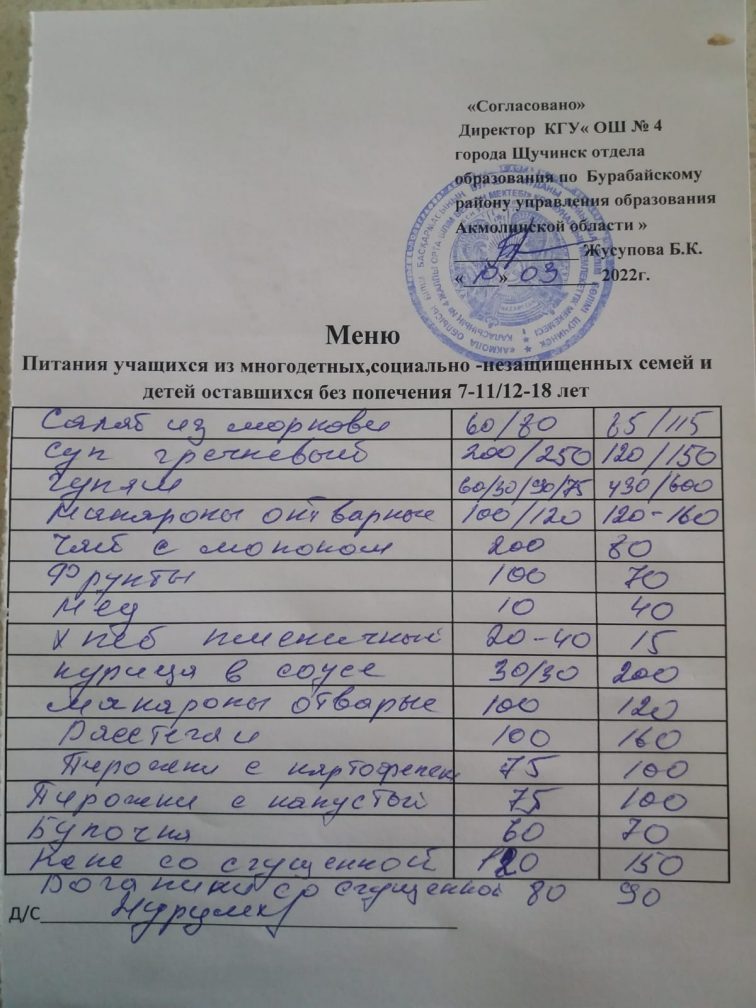 «Согласовано»
Директор КГУ« ОШ № 4
города Щучинск отдела
образования по Бурабайскому
району управления образования
Акмолинской области »
Жусупова Б.К.
« 10 » 03 2022г.
Меню
Питания учащихся из многодетных,социально -незащищенных семей и
детей оставшихся без попечения 7-11/12-18 лет
Салат из моркови 60/80 85/115
Суп гречневый 200/250 120/150
Гуляш 60/30/90/75 430/600
Макароны отварные 100/120 120-160
Чай с молоком 200 80
Фрукты 100 70
Мёд 10 40
Хлеб пшеничный 20-40 15
курица в соусе 30/30 200
Макароны отварые 100 120
Расстегаи 100 160
Пирожки с картофелем 75 100
Пирожки с капустой 75 100
Булочка 60 70
Кекс со сгущенной 120 150
со сгущенной 80 90
Д/С